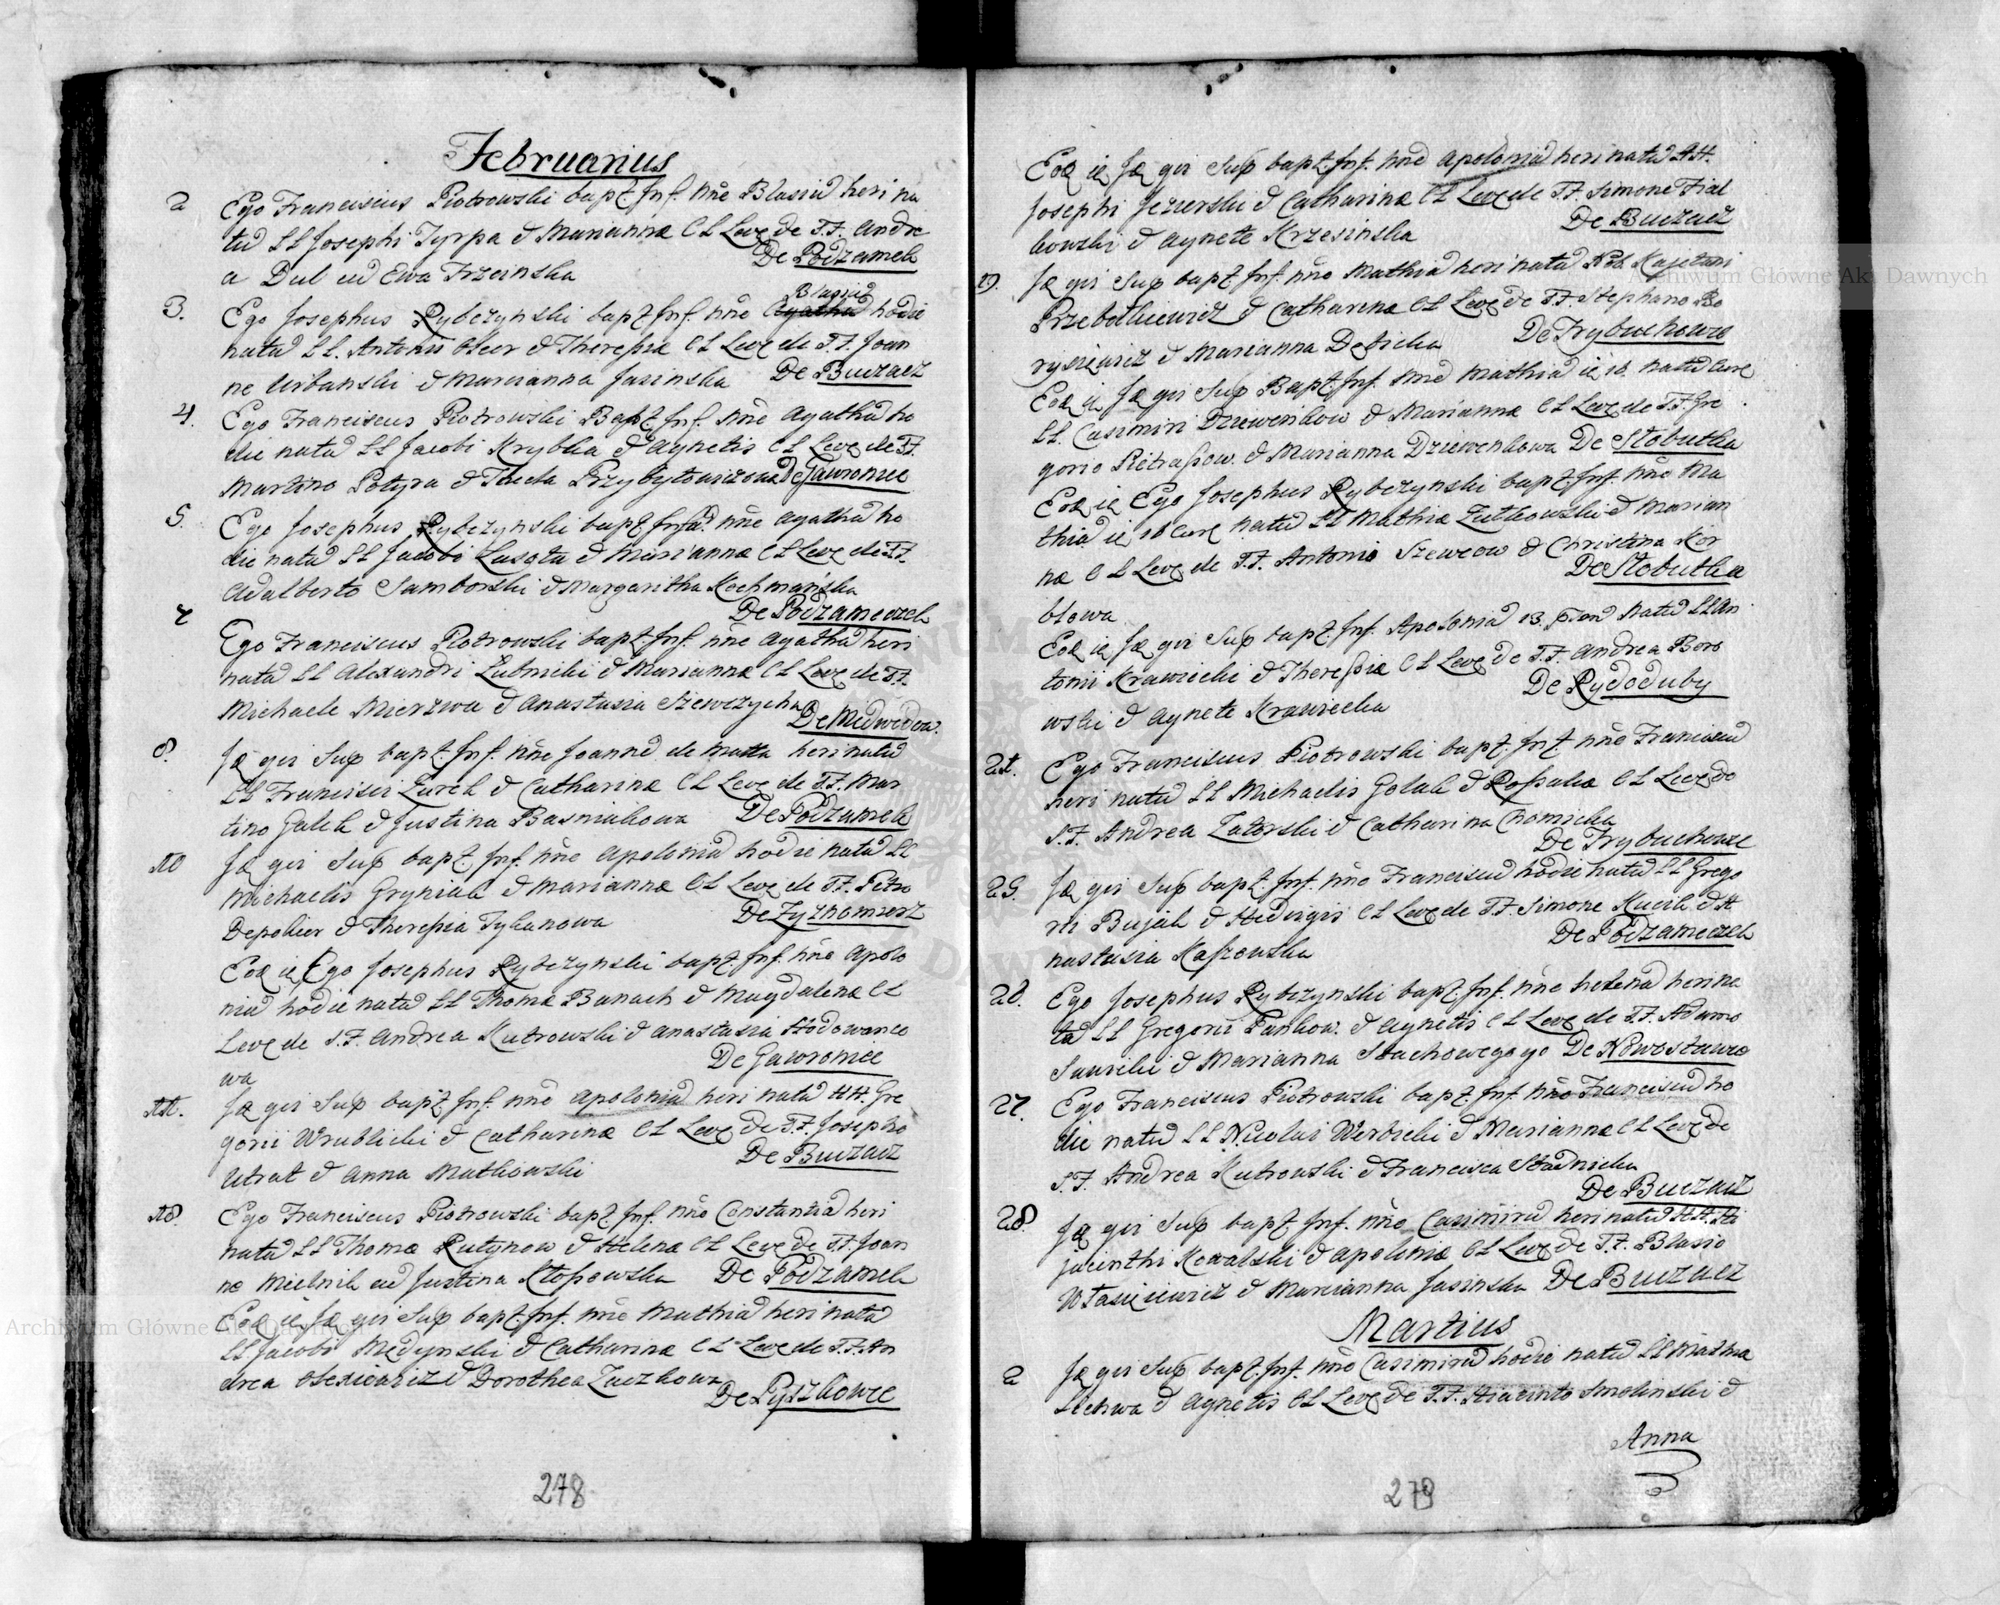 Februarius
2 Ego Franciscus Piotrowski bapt. Inf. nne Blasiu heri na
tu LL Josephi Tyrpa & Mariannæ CL Leve de F.F. Andre
a Dul cu Ewa Trzcinska De Podzamek
Blasiu
3. Ego Josephus Rybczynski bapt. Inf. nne Agatha hodie
natu LL. Antonii & Theresiæ CL Leve de F.F. Joan
ne Urbanski & Marianna Jasinska De Buczacz
4. Ego Franciscus Piotrowski Bapt. Inf. nne Agatha ho
die natu LL Jacobi Krybka & Agnetis CL Leve de F.F.
Martino Potyra & Thecla Przybytowiczowa De Gawronice
5. Ego Josephus Rybczynski bapt. nne Agatha ho
die natu LL Jacobi Lasota & Mariannæ CL Leve de F.F.
Adalberto Samborski & Margaritha Kochmańska
De Podzameczek
7 Ego Franciscus Piotrowski bapt. Inf. nne Agatha heri
natu LL Alexandri Lubnicki & Mariannæ CL Leve de F.F.
Michaele Mierzwa & Anastasia Szewczycha
De Medwedow.
8. Jæ qui Sup bapt. Inf. nne Joanne de Matta heri natu
LL Francisci Zurek & Catharinæ CL Leve de F.F. Mar
tino Galek & Justina Basniakowa De Podzamek
10 Jæ qui Sup bapt. Inf. nne Apolonia hodie natu LL
Michaelis Gryniak & Mariannæ CL Leve de F.F. Petro
Depolier & Theresia Tykanowa De Zyznomierz
Eod ie Ego Josephus Rybczynski bapt. Inf. nne Apolo
nia hodie natu LL Thomæ Banach & Magdalenæ CL
Leve de F.F. Andrea Kutrowski & Anastasia Hodowanco
wa De Gawronice
11. Jæ qui Sup bapt. Inf. nne Apolonia heri natu HH. Gre
gorii Wrublicki & Catharinæ CL Leve de F.F. Josepho
Utrat & Anna Matkowski De Buczacz
18. Ego Franciscus Piotrowski bapt. Inf. nne Constantia heri
natu LL Thomæ Rutynow & Helenæ CL Leve de F.F. Joan
ne Mielnik cu Justina Kłosowska De Podzamek
Eod ie Jæ qui Sup bapt. Inf. nne Mathia heri natu
LL Jacobi Medynski & Catharinæ CL Leve de F.F. An
drea & Dorothea Zuczkowa
De Pyszkowce
278
Eod ie Jæ qui Sup bapt. Inf. nne Apolonia heri natu HH.
Josephi Jezierski & Catharinæ CL Leve de F.F. Simone Fial
kowski & Agnete Krzesinska De Buczacz
19. Jæ qui Sup bapt. Inf. nne Mathia heri natu Nob. Kajetani
Przebotkiewicz & Catharinæ CL Leve de F.F. Stephano Bo
rysiewicz & Marianna Deticka De Trybuchowce
Eod ie Jæ qui Sup Bapt. Inf. nne Mathia ie 18. natu curr
LL Casimiri Dziewenkow & Mariannæ CL Leve de F.F. Gre
gorio Pietrasow. & Marianna Dziewenkowa De Stobutka
Eod ie Ego Josephus Rybczynski bapt. Inf. nne Ma
thia ie 18 curr natu LL Mathiæ Zutkowski & Marian
næ CL Leve de F.F. Antonio Szewcow & Christina Kor
błowa De Stobutka
Eod ie Jæ qui Sup bapt. Inf. Apolonia 13. natu LL An
tonii Krawiecki & Theresiæ CL Leve de F.F. Andrea Boro
wski & Agnete Krawiecka De Rydoduby
21. Ego Franciscus Piotrowski bapt. Inf. nne Franciscu
heri natu LL Michaelis Golak & Rosaliæ CL Leve de
F.F. Andrea Zatorski & Catharina Chomicka
De Trybuchowce
25. Jæ qui Sup bapt. Inf. nne Franciscu hodie natu LL Grego
rii Bujak & Hedvigis CL Leve de F.F. Simone Kucik & A
nastasia Kaszowska De Podzameczek
26. Ego Josephus Rybczynski bapt. Inf. nne Helena heri na
tu LL Gregorii Pankow. & Agnetis CL Leve de F.F. Adamo
Sawicki & Marianna Stachowegogo De Nowostawce
27. Ego Franciscus Piotrowski bapt. Inf. nne Franciscu ho
die natu LL Nicolai Werbicki & Mariannæ CL Leve de
F.F. Andrea Kutrowski & Francisca Stadnicka
De Buczacz
28. Jæ qui Sup bapt. Inf. nne Casimiru heri natu HH. Hi
jacinthi Kowalski & Apoloniæ CL Leve de F.F. Blasio
Własiewicz & Marianna Jasinska De Buczacz
Martius
2 Jæ qui Sup bapt. Inf. nne Casimiru hodie natu LL
Slehwa & Agnetis CL Leve de F.F. Hiacinto Smolinski &
Anna
279
Archiwum Główne Akt Dawnych
Archiwum Główne Akt Dawnych